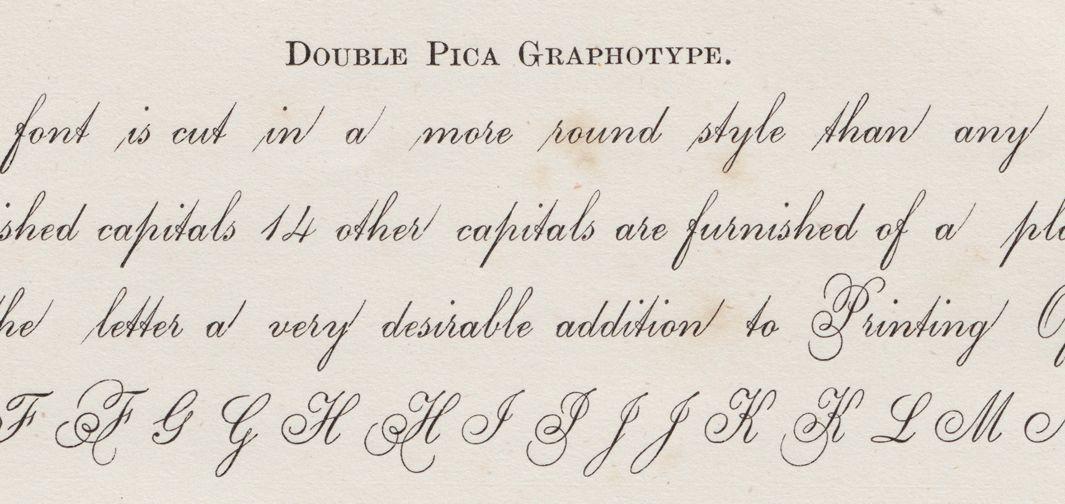 Double Pica Graphotype.
font is cut in a more round style than any
shed capitals 14 other capitals are furnished of a
he letter a very desirable addition to Printing
F F G G H H I I J J K K L M